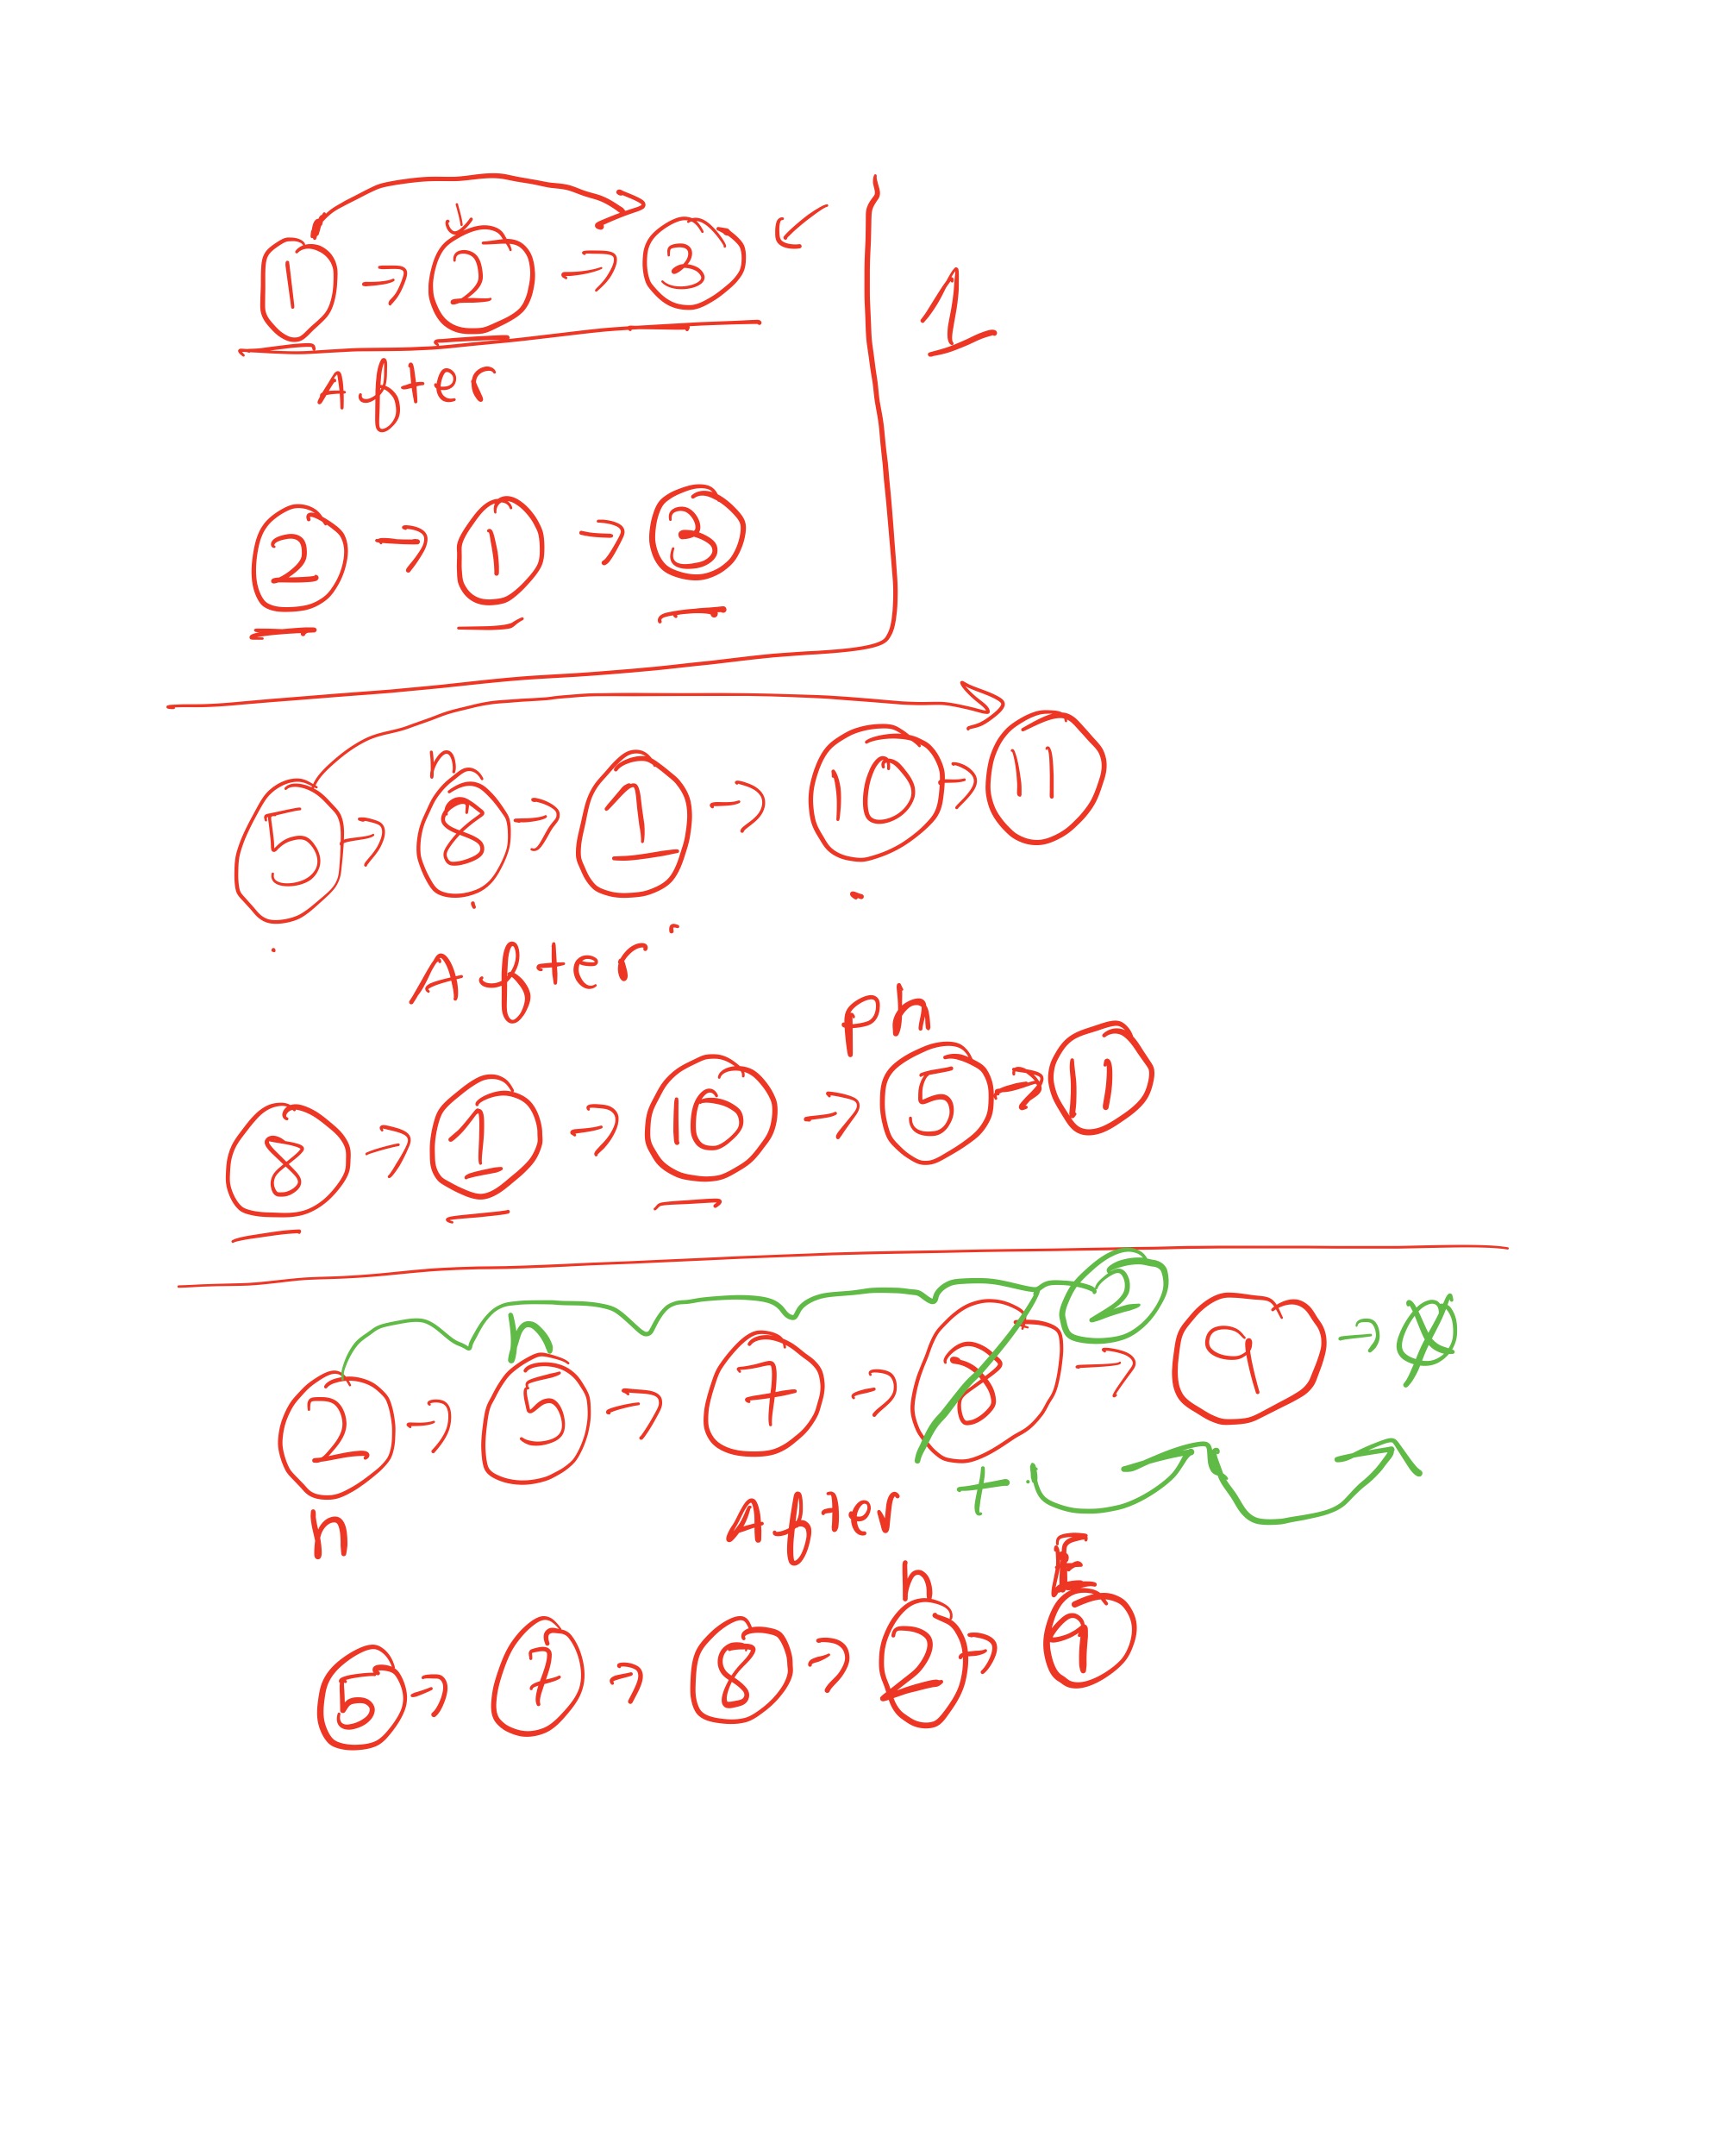 1 → 2 → 3
1
After
2 → 1 → 3
h
5 → 8 → 1 → 10 → 11
After
ph
8 → 1 → 10 → 5 → 11
h 2
2 → 5 → 7 → 8 → 9 →
+
n After
h
5 → 7 → 8 → 2 → 9